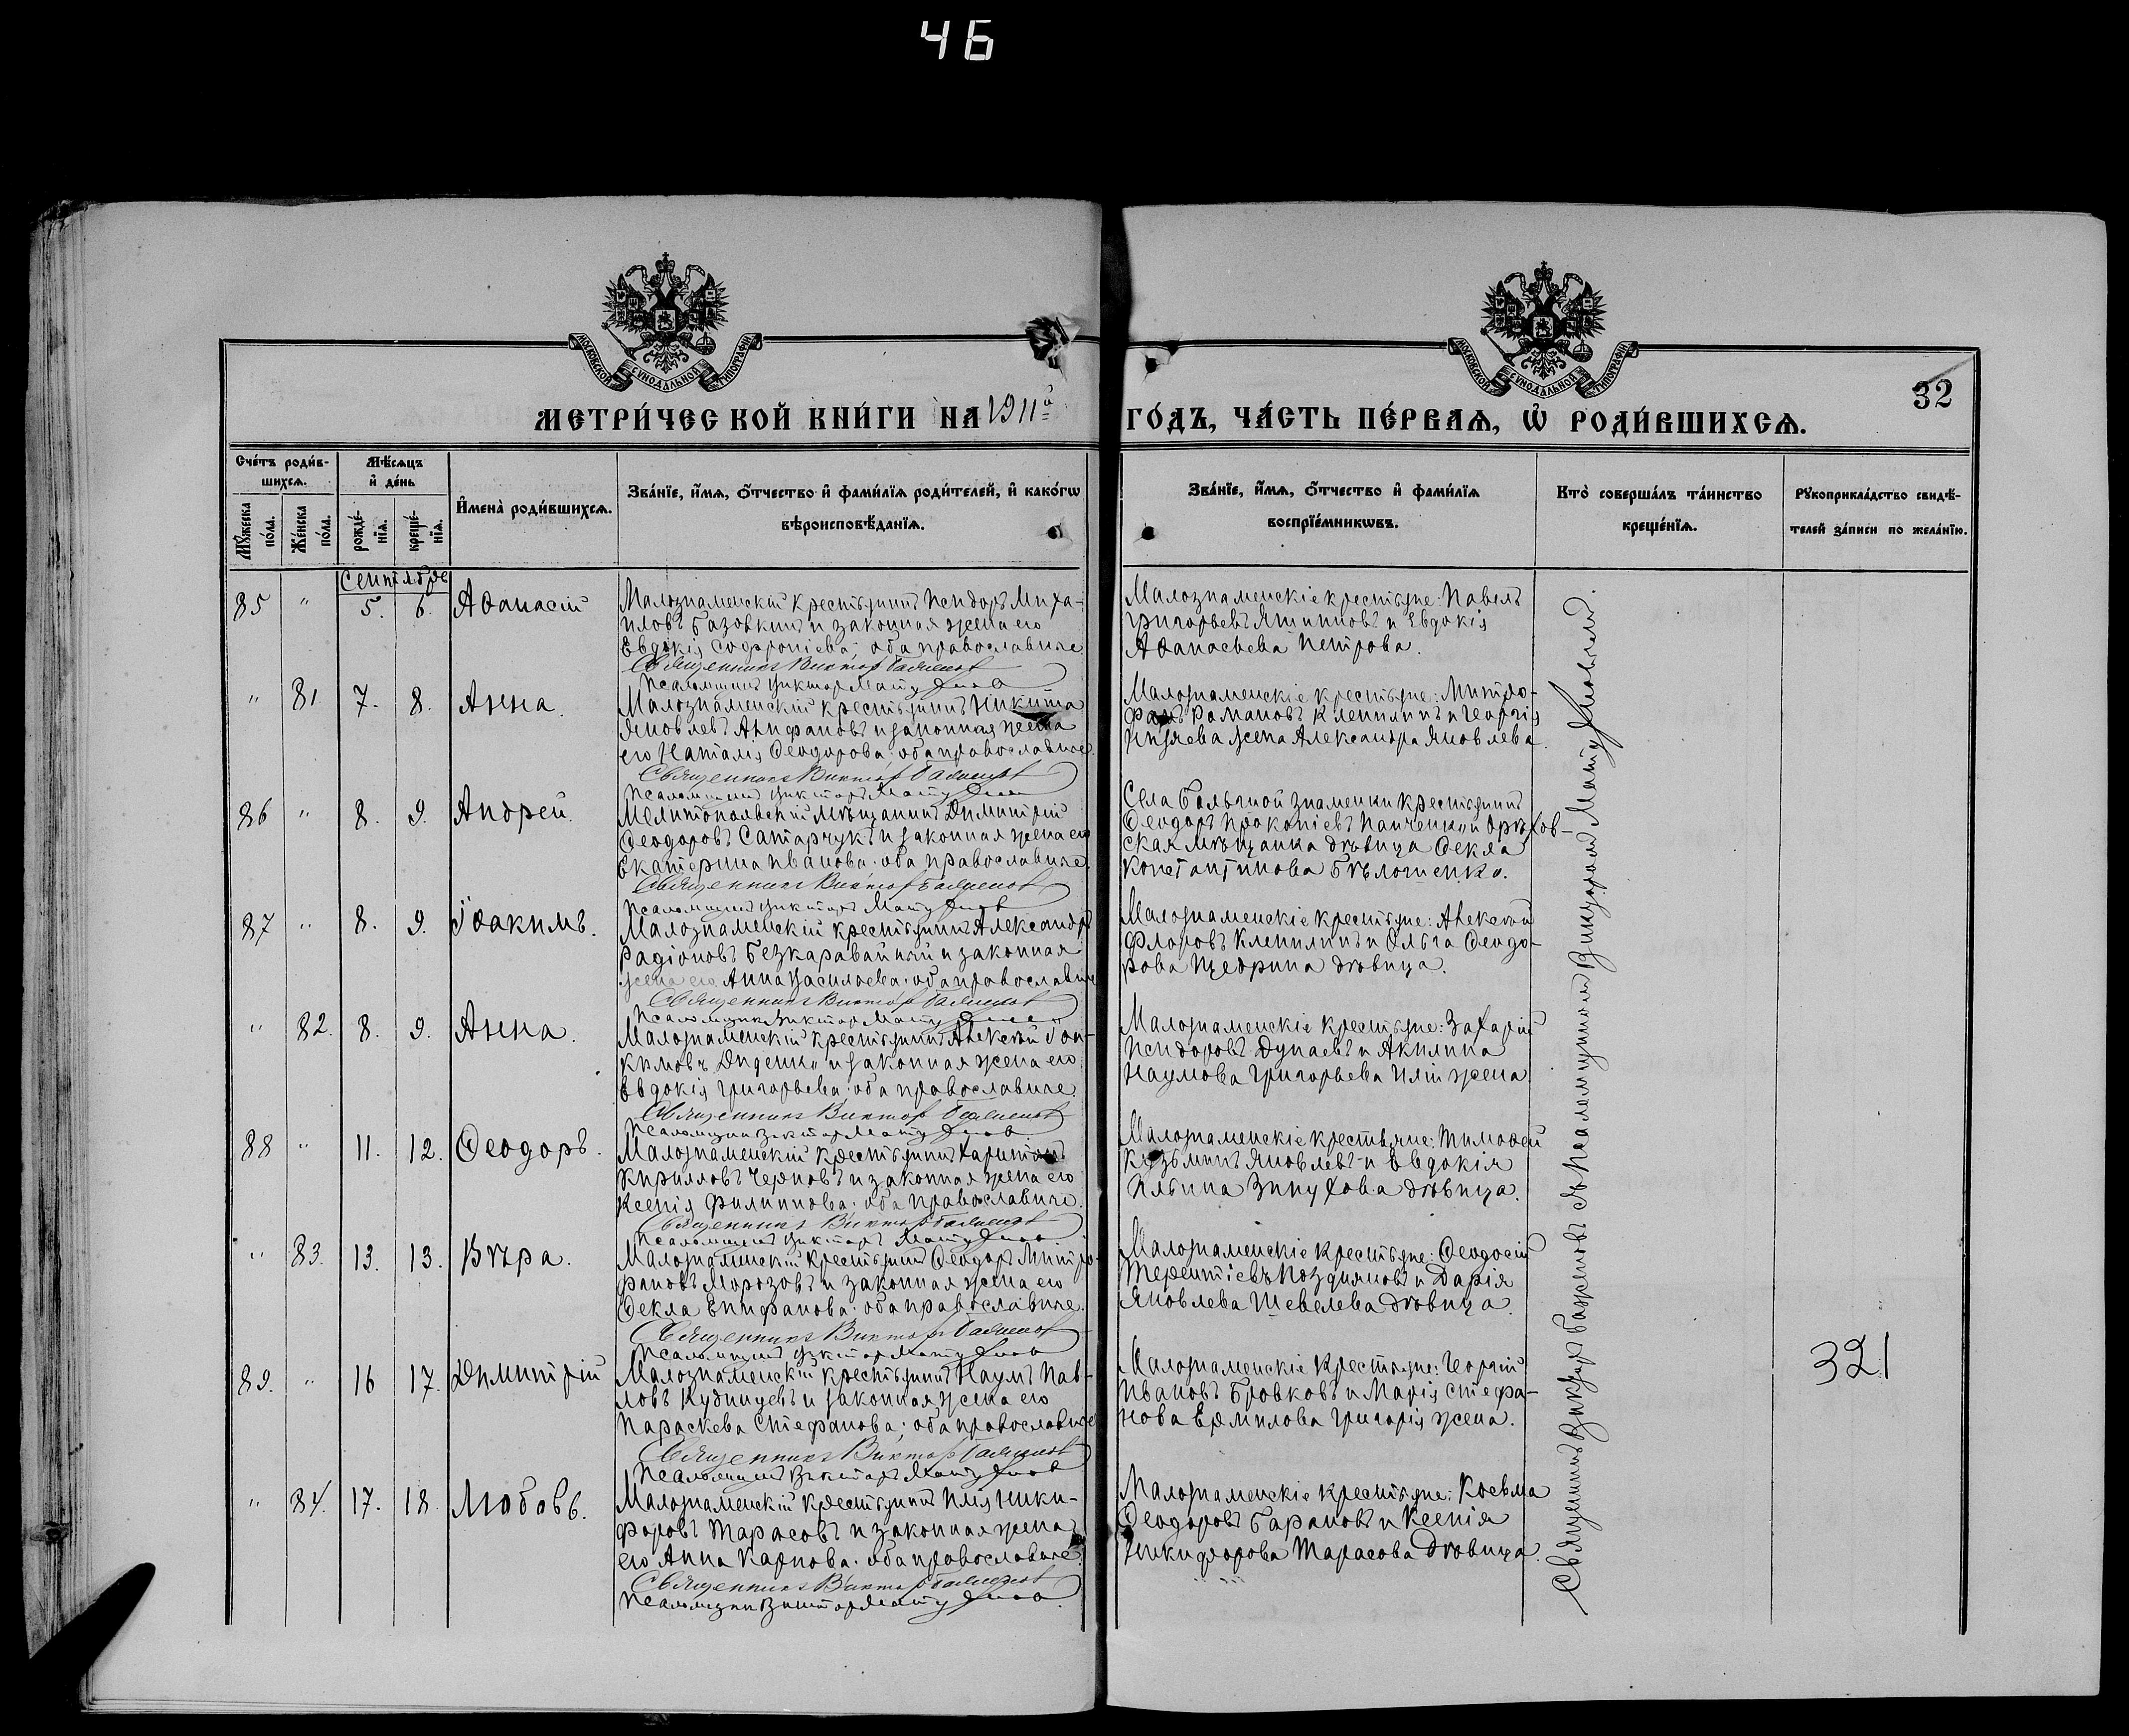 46
МОСКОВСКОЙ СУНОДАЛЬНОЙ ТИПОГРАФІИ
МОСКОВСКОЙ СУНОДАЛЬНОЙ ТИПОГРАФІИ
32
МЕТРИ́ЧЕСКОЙ КНИ́ГИ НА 1911й ГО́ДЪ, ЧА́СТЬ ПЕ́РВАѦ, Ѡ҆ РОДИ́ВШИХСѦ.
Сче́тъ роди́в-
шихсѧ.
Мѣ́сѧцъ
и҆ де́нь
Мꙋ́жеска по́ла.
Же́нска по́ла.
рожде́-
нїѧ.
креще́-
нїѧ.
И҆мена̀ роди́вшихсѧ.
Зва́нїе, и҆́мѧ, ѻ҆́тчество и҆ фами́лїѧ роди́телей, и҆ како́гѡ
вѣроисповѣ́данїѧ.
Зва́нїе, и҆́мѧ, ѻ҆́тчество и҆ фами́лїѧ
воспрїе́мникѡвъ.
Кто̀ соверша́лъ та́инство
креще́нїѧ.
Рꙋкоприкла́дство свидѣ́-
телей за́писи по жела́нїю.
Сентябре
85 " 5. 6. Аѳанасій
Малознаменскій крестьянинъ Исидоръ Миха-
иловъ Базовкинъ и законная жена его
Евдокія Софроніева; оба православные
Священникъ Викторъ Баженов
Псаломщикъ Викторъ
Малознаменскіе крестьяне: Павелъ
Григорьевъ Яшниковъ и Евдокія
Аѳанасьева Петрова.
" 81. 7. 8. Анна.
Малознаменскій крестьянинъ Никита
Яковлевъ Анифановъ и законная жена
его Наталія Ѳеодорова; оба православные.
Священникъ Викторъ Баженов
Псаломщикъ Викторъ
Малознаменскіе крестьяне: Митро-
фанъ Романовъ Клепилинъ и Георгія
жена Александра Яковлева.
86 " 8. 9. Андрей.
Мелитопольскій мѣщанинъ Димитрій
Ѳеодоровъ Сатарчукъ и законная жена его
Екатерина Иванова: оба православные
Священникъ Викторъ Баженов
Псаломщикъ Викторъ
Села Большой Знаменки крестьянинъ
Ѳеодоръ Прокопіевъ Панченко и Орѣхов-
ская мѣщанка дѣвица Ѳекла
Константинова Бѣлошенко.
87 " 8. 9. Іоакимъ.
Малознаменскій крестьянинъ Александръ
Радіоновъ Безкаравайный и законная
жена его Анна Васильева: оба православные
Священникъ Викторъ Баженов
Псаломщикъ Викторъ
Малознаменскіе крестьяне: Алексѣй
Флоровъ Клепилинъ и Ольга Ѳеодо-
рова Щедрина дѣвица.
" 82. 8. 9. Анна.
Малознаменскій крестьянинъ Алексѣй Іоа-
кимовъ Диденко и законная жена его
Евдокія Григорьева; оба православные.
Священникъ Викторъ Баженов
Псаломщикъ Викторъ
Малознаменскіе крестьяне: Захарій
Исидоровъ Дунаевъ и Акилина
Наумова Григорьева Иліи жена.
88 " 11. 12. Ѳеодоръ.
Малознаменскій крестьянинъ Харитонъ
Кирилловъ Черновъ и законная жена его
Ксенія Филиппова; оба православные.
Священникъ Викторъ Баженов
Псаломщикъ Викторъ
Малознаменскіе крестьяне: Тимоѳей
Кузьминъ Яковлевъ и Евдокія
Ильина Зинухова дѣвица.
" 83. 13. 13. Вѣра.
Малознаменскій крестьянинъ Ѳеодоръ Митро-
фановъ Морозовъ и законная жена его
Ѳекла Епифанова: оба православные.
Священникъ Викторъ Баженов
Псаломщикъ Викторъ
Малознаменскіе крестьяне: Ѳеодосій
Терентіевъ Поздняковъ и Дарія
Яковлева Шевелева дѣвица.
89. " 16 17. Димитрій
Малознаменскій крестьянинъ Наумъ Пав-
ловъ Кудинцевъ и законная жена его
Параскева Стефанова; оба православные
Священникъ Викторъ Баженов
Псаломщикъ Викторъ
Малознаменскіе крестьяне: Георгій
Ивановъ Бровковъ и Марія Стефа-
нова Ермилова Григорія жена.
321
" 84. 17. 18. Любовь.
Малознаменскій крестьянинъ Илія Ники-
форовъ Тарасовъ и законная жена
его Анна Карпова: оба православные.
Священникъ Викторъ Баженов
Псаломщикъ Викторъ
Малознаменскіе крестьяне: Косьма
Ѳеодоровъ Барановъ и Ксенія
Никифорова Тарасова дѣвица.
Священникъ Викторъ Баженовъ съ псаломщикомъ Викторомъ